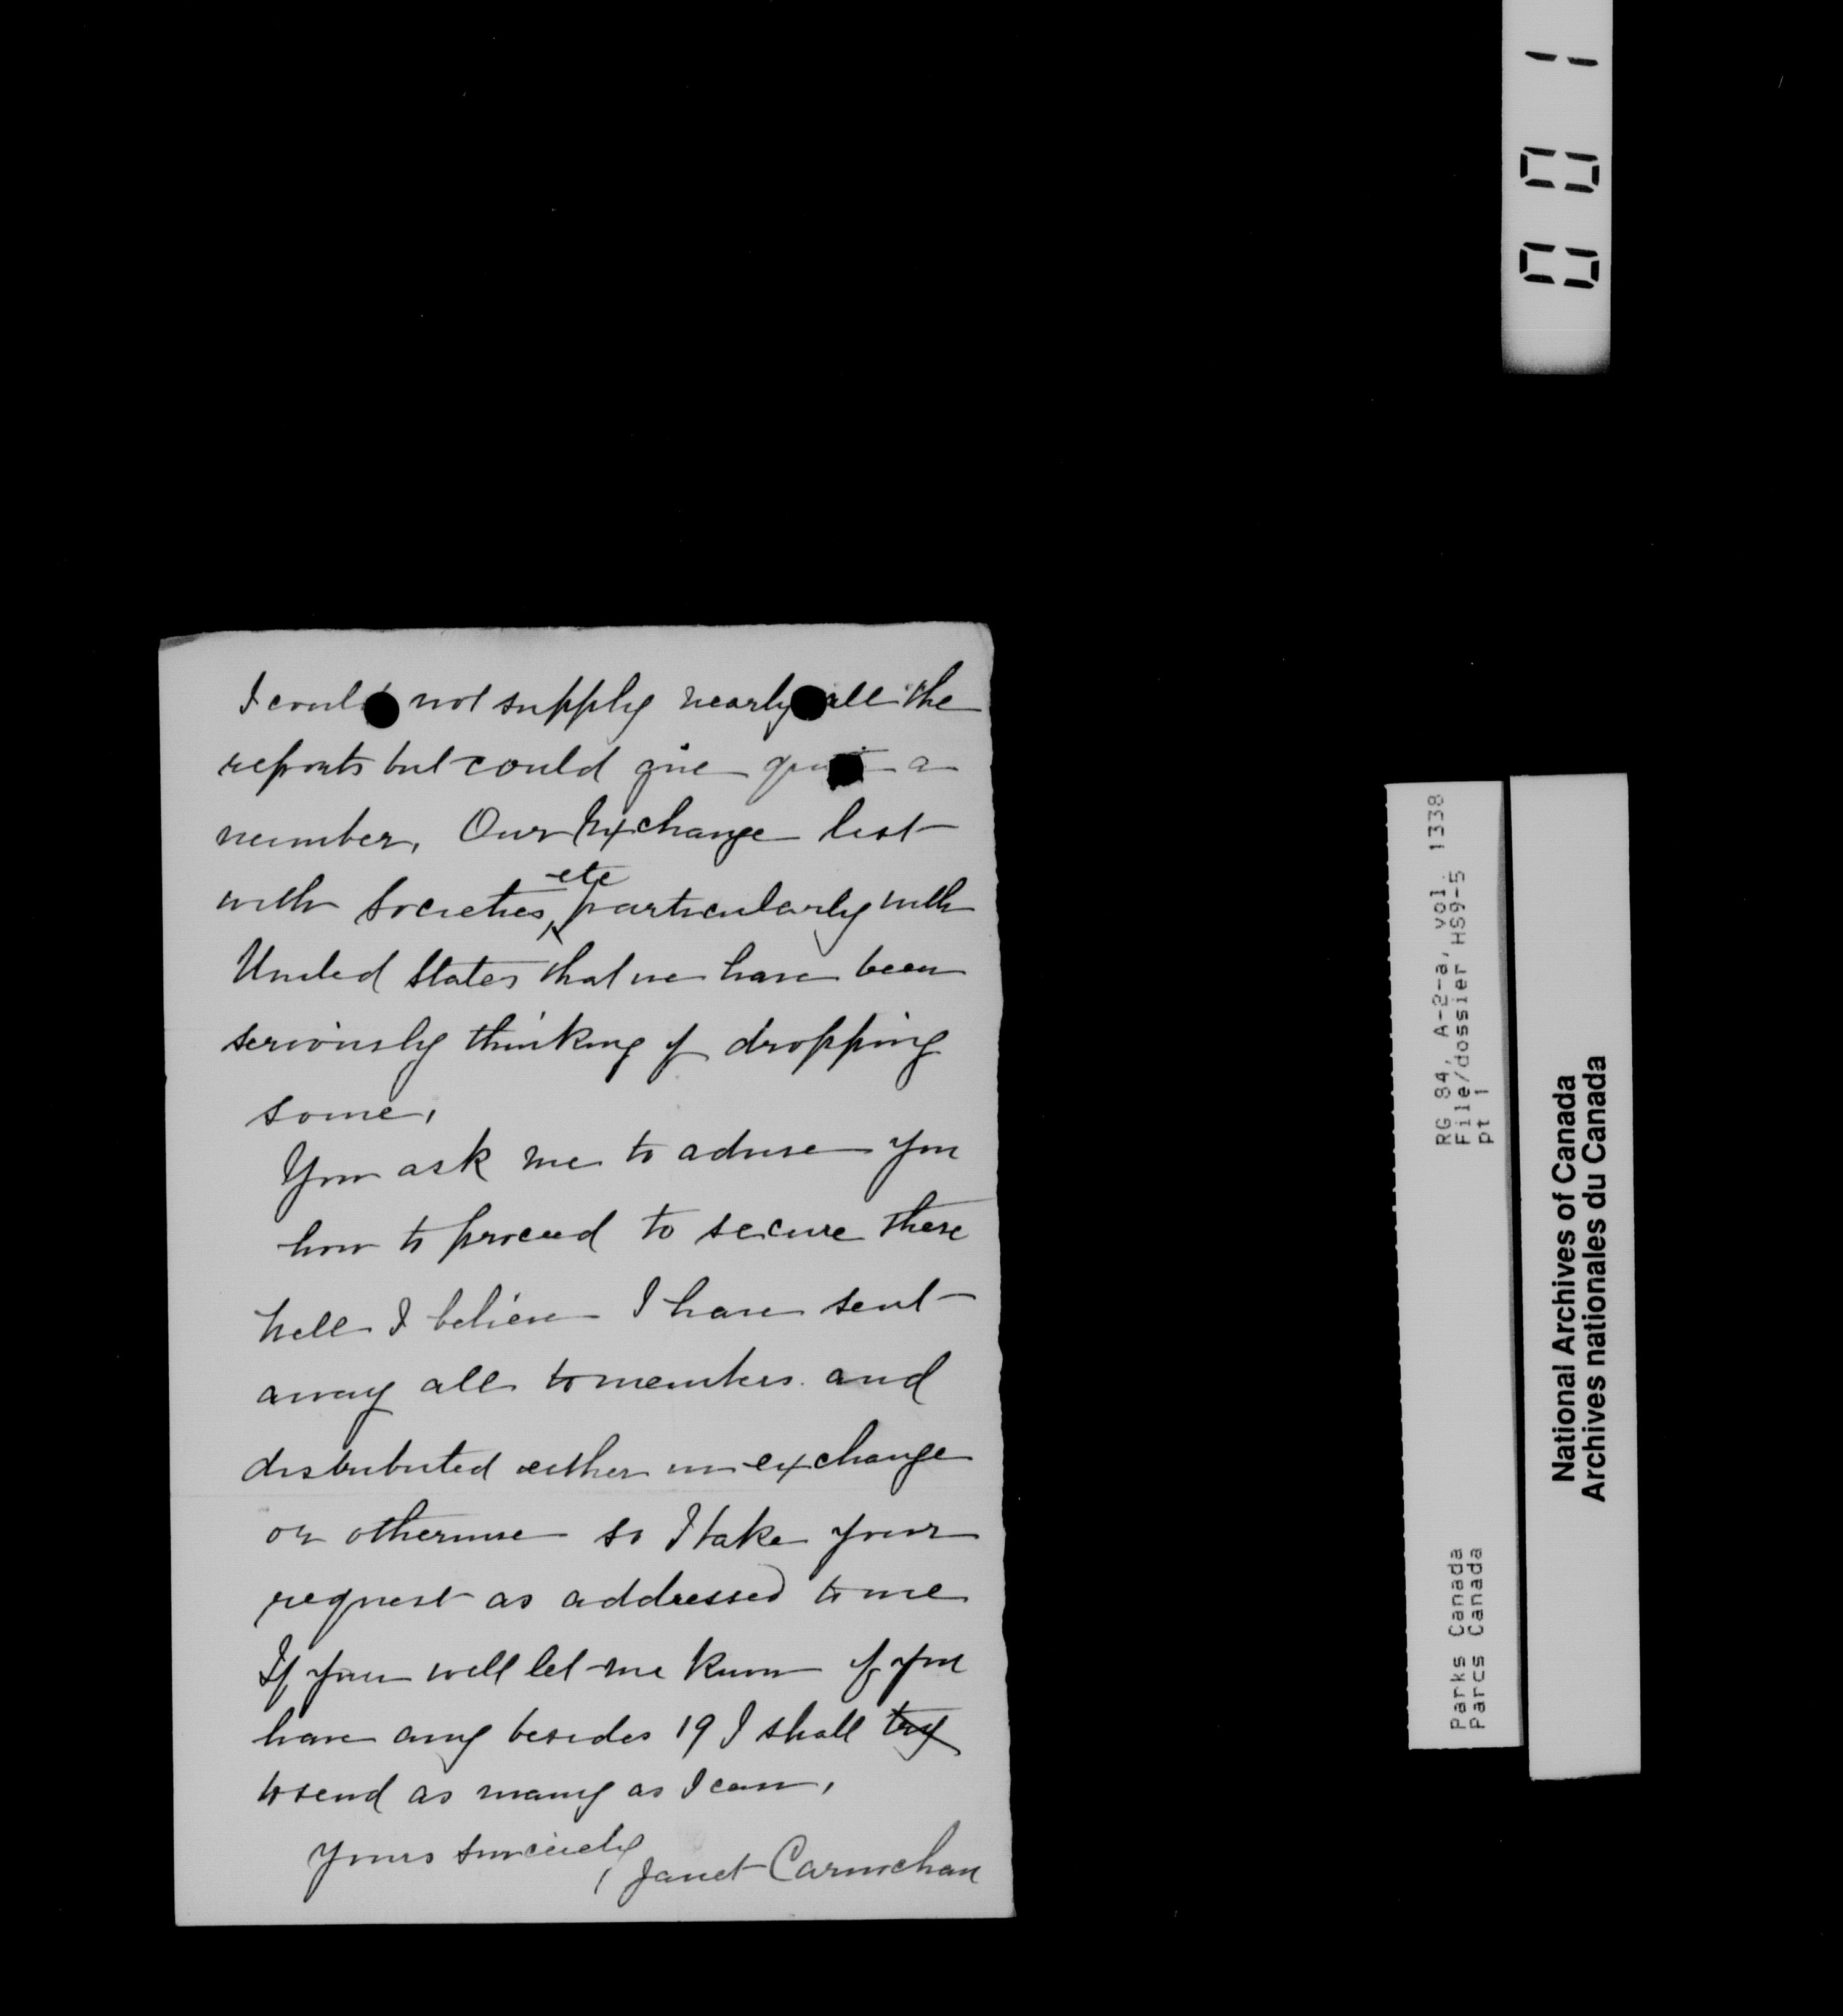 I could not supply nearly all the
reports but could give quite a
number. Our Exchange list
with Societies, etc particularly with
United States that we have been
seriously thinking of dropping
some.
You ask me to advise you
how to proceed to secure these
Well I believe I have sent
away all to members and
distributed either in exchange
or otherwise so I take your
request as addressed to me
If you will let me know if you
have any besides 19 I shall try
to send as many as I can.
Yours sincerely
Janet Carnochan
001
RG 84, A-2-a, vol. 1338
File/dossier HS9-5
pt 1
Parks Canada
Parcs Canada
National Archives of Canada
Archives nationales du Canada